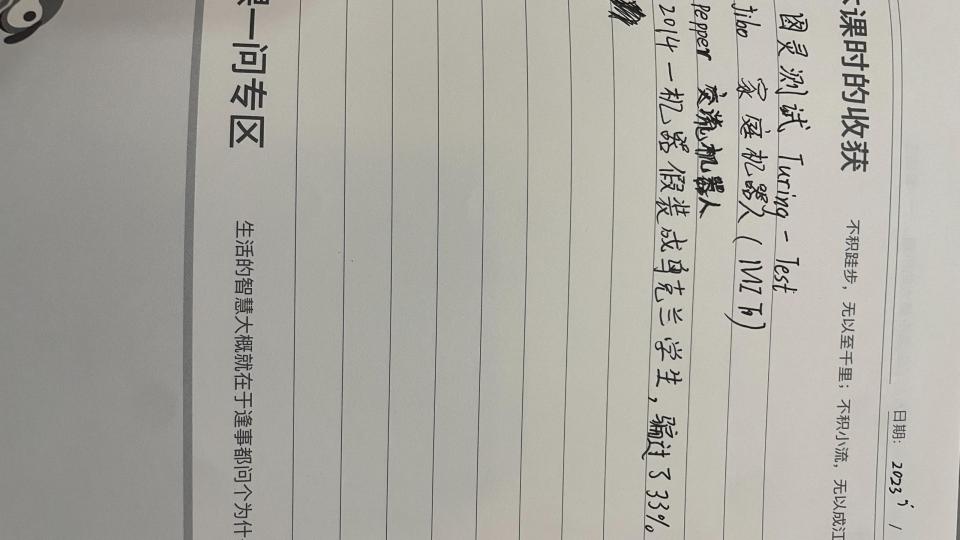 日期： 2023
本课时的收获 不积跬步，无以至千里；不积小流，无以成江
图灵测试 Turing - Test
Jibo 家庭机器人（MIT）
Pepper 交流机器人
2014 一机器假装成乌克兰学生，骗过了33%
课一问专区 生活的智慧大概就在于逢事都问个为什